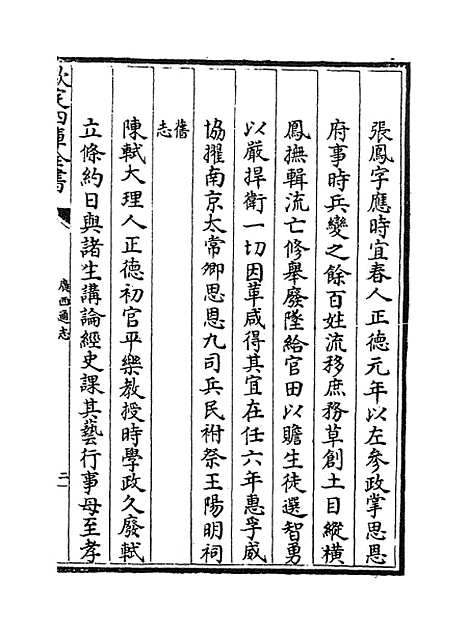 張鳳字應時宜春人正德元年以左參政掌思恩
府事時兵變之餘百姓流移庶務草創土目縱横
鳳撫輯流亡修舉廢墜給官田以贍生徒選智勇
以嚴捍衛一切因革咸得其宜在任六年惠孚威
協擢南京太常卿思恩九司兵民祔祭王陽明祠
舊志
陳軾大理人正德初官平樂教授時學政久廢軾
立條約日與諸生講論經史課其藝行事母至孝
欽定四庫全書
廣西通志